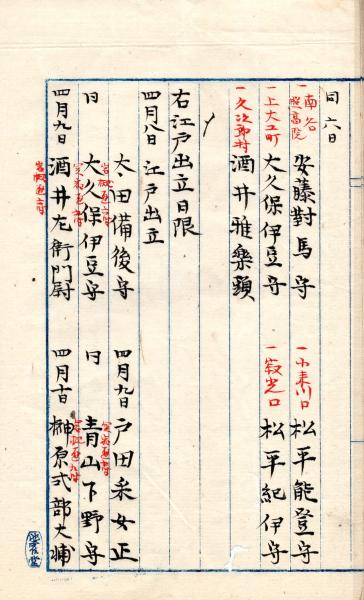 同六日
一南谷
照高院
安藤對馬守
一小来川口
松平能登守
一上大工町
大久保伊豆守
一寂光口
松平紀伊守
一久次郎村
酒井雅樂頭
右江戸出立日限
四月八日 江戸出立
太田備後守
四月九日 戸田采女正
同
大久保伊豆守
同
青山下野守
四月九日 酒井左衛門尉
四月十日 榊原式部大輔